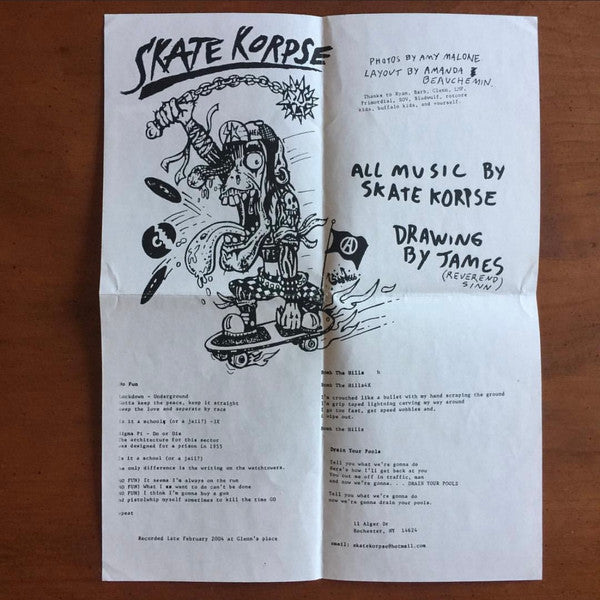 SKATE KORPSE
PHOTOS BY AMY MALONE
LAYOUT BY AMANDA
BEAUCHEMIN.
Thanks to Ryan, Barb, Glenn, LMP,
Primordial, SOV, Bludwulf, rotcore
kids, buffalo kids, and yourself.
ALL MUSIC BY
SKATE KORPSE
DRAWING
BY JAMES
(REVEREND
SINN)
No Fun
Lockdown - Underground
Gotta keep the peace, keep it straight
keep the love and separate by race
Is it a school (or a jail?) -3X
Sigma Pi - Do or Die
The architecture for this sector
was designed for a prison in 1955
Is it a school (or a jail?)
he only difference is the writing on the watchtowers.
NO FUN! It seems I'm always on the run
NO FUN! What I want to do can't be done
NO FUN! I think I'm gonna buy a gun
nd pistolwhip myself sometimes to kill the time GO
epeat
Recorded late February 2004 at Glenn's place
Bomb The Hills h
Bomb The Hills4X
I'm crouched like a bullet with my hand scraping the ground
I'm grip taped lightning carving my way around
I go too fast, get speed wobbles and.
I wipe out.
Bomb the Hills
Drain Your Pools
Tell you what we're gonna do
Here's how I'll get back at you
You cut me off in traffic, man
and now we're gonna. . . DRAIN YOUR POOLS
Tell you what we're gonna do
now we're gonna drain your pools.
11 Alger Dr
Rochester, NY 14624
email: skatekorpse@hotmail.com